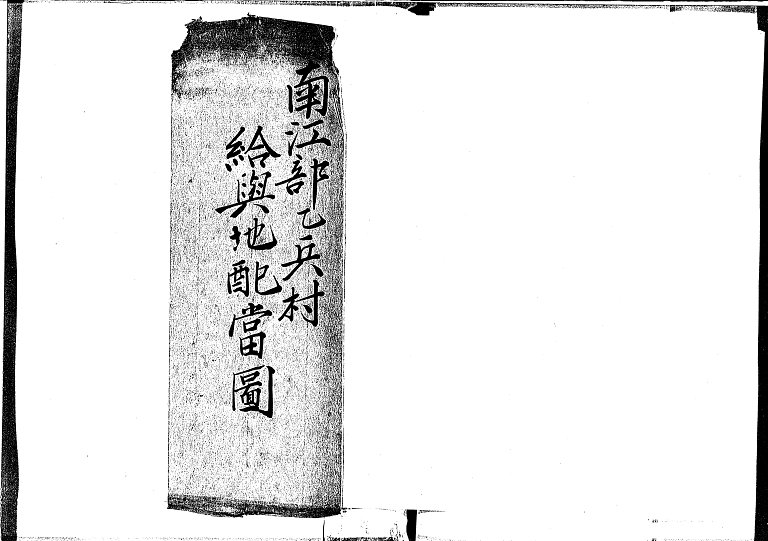 南江部乙兵村
給與地配當圖